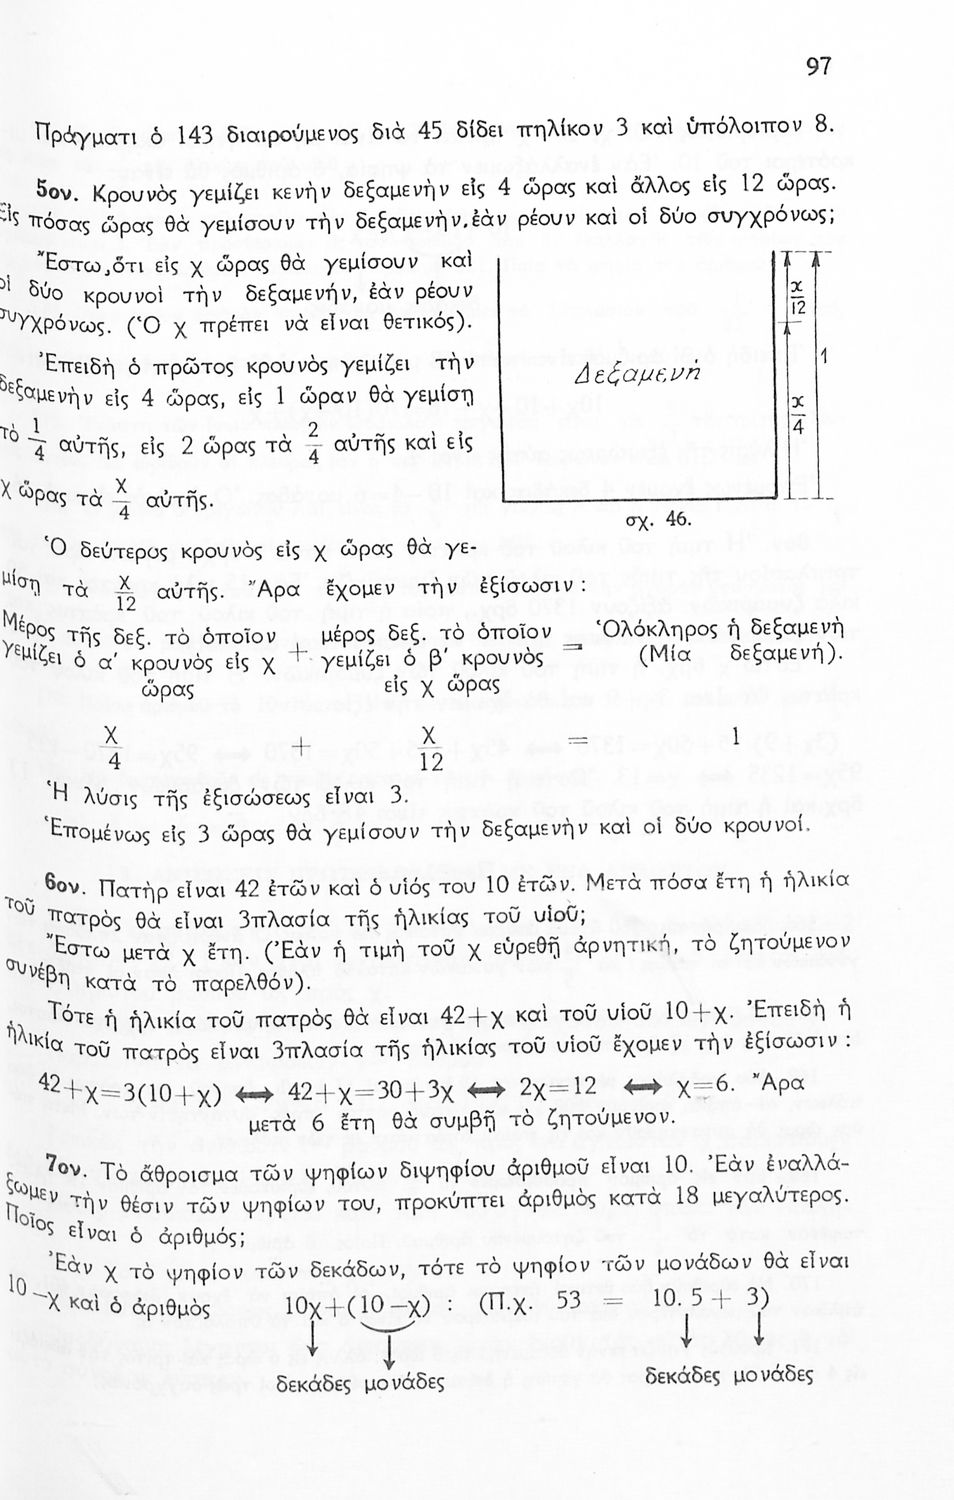 97
Πράγματι ὁ 143 διαιρούμενος διὰ 45 δίδει πηλίκον 3 καὶ ὑπόλοιπον 8.
5ον. Κρουνὸς γεμίζει κενὴν δεξαμενὴν εἰς 4 ὥρας καὶ ἄλλος εἰς 12 ὥρας.
Εἰς πόσας ὥρας θὰ γεμίσουν τὴν δεξαμενὴν, ἐὰν ρέουν καὶ οἱ δύο συγχρόνως;
Ἔστω, ὅτι εἰς χ ὥρας θὰ γεμίσουν καὶ
οἱ δύο κρουνοὶ τὴν δεξαμενήν, ἐὰν ρέουν
συγχρόνως. (Ὁ χ πρέπει νὰ εἶναι θετικός).
Ἐπειδὴ ὁ πρῶτος κρουνὸς γεμίζει τὴν
δεξαμενὴν εἰς 4 ὥρας, εἰς 1 ὥραν θὰ γεμίσῃ
τὸ 1/4 αὐτῆς, εἰς 2 ὥρας τὰ 2/4 αὐτῆς καὶ εἰς
χ ὥρας τὰ χ/4 αὐτῆς.
Δεξαμενή
x/12
x/4
1
σχ. 46.
Ὁ δεύτερος κρουνὸς εἰς χ ὥρας θὰ γε-
μίσῃ τὰ χ/12 αὐτῆς. Ἄρα ἔχομεν τὴν ἐξίσωσιν :
Μέρος τῆς δεξ. τὸ ὁποῖον + μέρος δεξ. τὸ ὁποῖον = Ὁλόκληρος ἡ δεξαμενὴ
γεμίζει ὁ α′ κρουνὸς εἰς χ γεμίζει ὁ β′ κρουνὸς (Μία δεξαμενή).
ὥρας εἰς χ ὥρας
χ/4 + χ/12 = 1
Ἡ λύσις τῆς ἐξισώσεως εἶναι 3.
Ἑπομένως εἰς 3 ὥρας θὰ γεμίσουν τὴν δεξαμενὴν καὶ οἱ δύο κρουνοί.
6ον. Πατὴρ εἶναι 42 ἐτῶν καὶ ὁ υἱός του 10 ἐτῶν. Μετὰ πόσα ἔτη ἡ ἡλικία
τοῦ πατρὸς θὰ εἶναι 3πλασία τῆς ἡλικίας τοῦ υἱοῦ;
Ἔστω μετὰ χ ἔτη. (Ἐὰν ἡ τιμὴ τοῦ χ εὑρεθῇ ἀρνητική, τὸ ζητούμενον
συνέβη κατὰ τὸ παρελθόν).
Τότε ἡ ἡλικία τοῦ πατρὸς θὰ εἶναι 42+χ καὶ τοῦ υἱοῦ 10+χ. Ἐπειδὴ ἡ
ἡλικία τοῦ πατρὸς εἶναι 3πλασία τῆς ἡλικίας τοῦ υἱοῦ ἔχομεν τὴν ἐξίσωσιν :
42+χ=3(10+χ) ⟷ 42+χ=30+3χ ⟷ 2χ=12 ⟷ χ=6. Ἄρα
μετὰ 6 ἔτη θὰ συμβῇ τὸ ζητούμενον.
7ον. Τὸ ἄθροισμα τῶν ψηφίων διψηφίου ἀριθμοῦ εἶναι 10. Ἐὰν ἐναλλά-
ξωμεν τὴν θέσιν τῶν ψηφίων του, προκύπτει ἀριθμὸς κατὰ 18 μεγαλύτερος.
Ποῖος εἶναι ὁ ἀριθμός;
Ἐὰν χ τὸ ψηφίον τῶν δεκάδων, τότε τὸ ψηφίον τῶν μονάδων θὰ εἶναι
10−χ καὶ ὁ ἀριθμὸς 10χ+(10−χ) : (Π.χ. 53 10.5+ 3)
δεκάδες μονάδες δεκάδες μονάδες